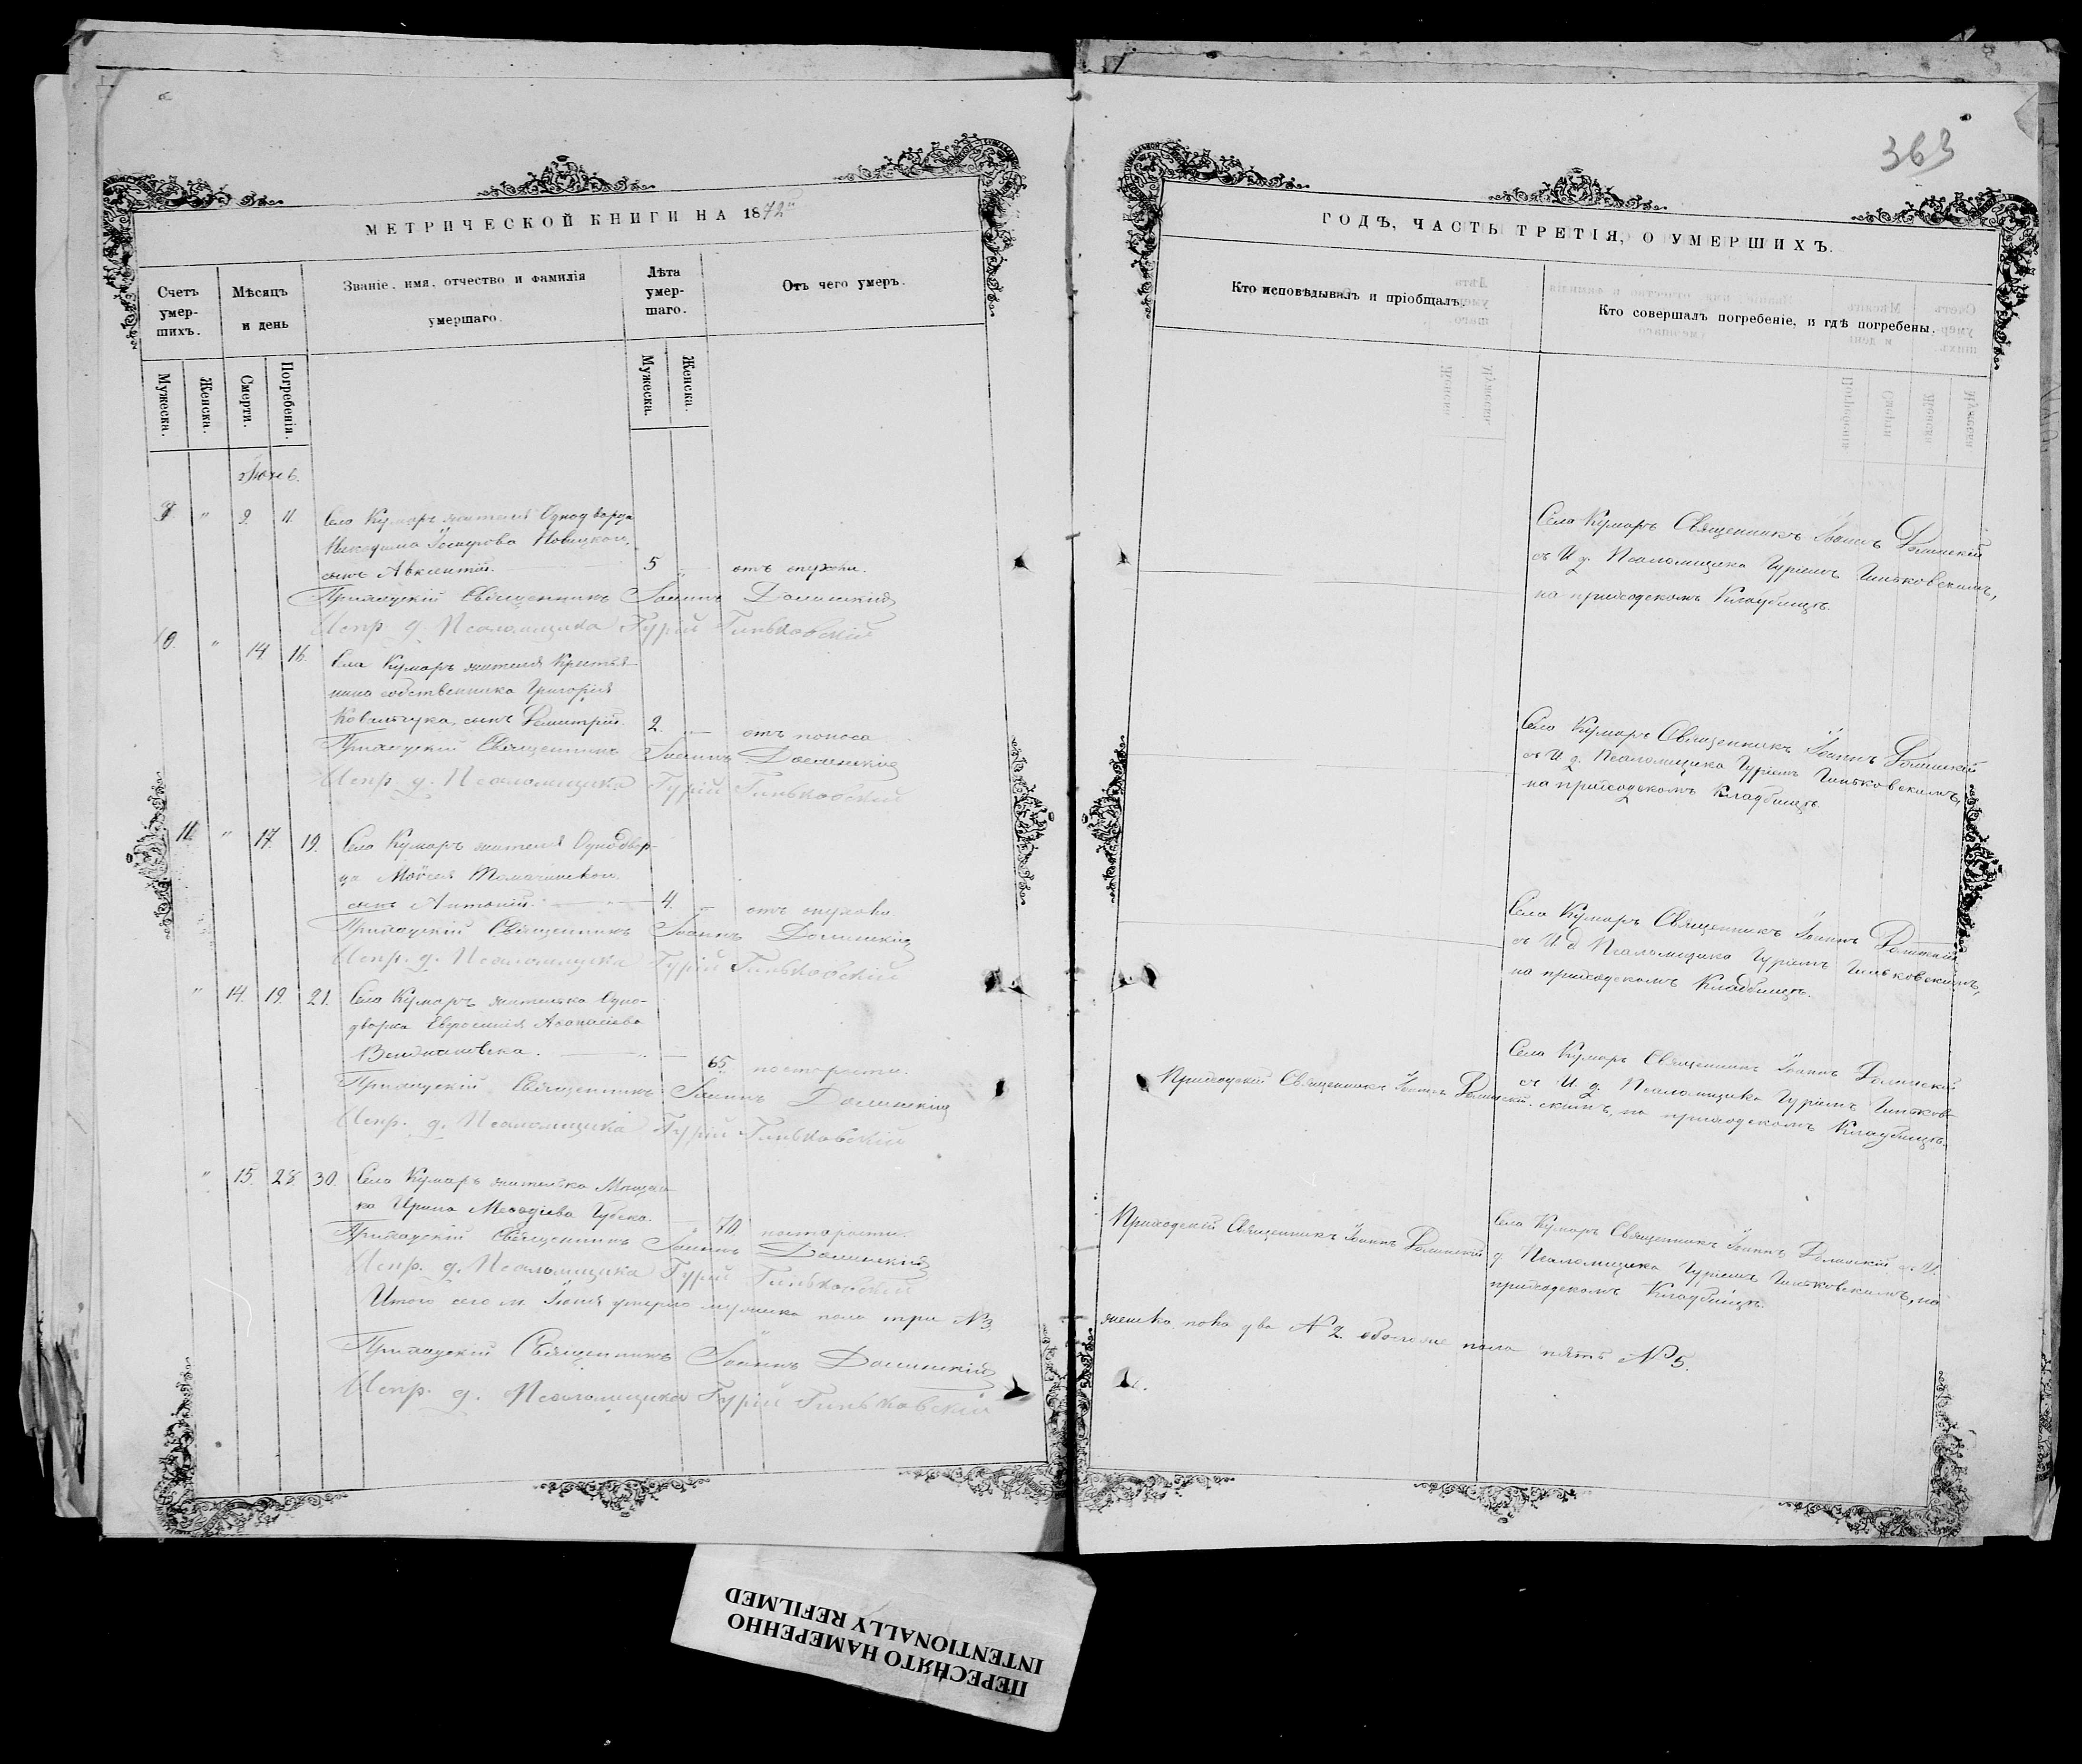 363
МЕТРИЧЕСКОЙ КНИГИ НА 1872й
Счетъ умер-шихъ.
Мѣсяцъ и день
Званіе, имя, отчество и фамилія умершаго.
Лѣта умер-шаго.
Отъ чего умеръ.
Мужеска.
Женска.
Смерти.
Погребенія.
Мужеска.
Женска.
9 " 9. 11. Села Кумаръ жителя Однодворца
Новицкого,
сынъ Авксентій. 5 " отъ опухоли.
Приходскій Священникъ Іоаннъ Долинскій
Испр. д. Псаломщика Гурій Гиньковскій
10. " 14. 16. Села Кумаръ жителя Крестья-
нина собственника Григорія
Ковальчука, сынъ Димитрій. 2. — отъ поноса
Приходскій Священникъ Іоаннъ Долинскій
Испр. д. Псаломщика Гурій Гиньковскій
11. " 17. 19. Села Кумаръ жителя Однодвор-
ца Моѵсея
сынъ Антоній. 4. — отъ опухоли
Приходскій Священникъ Іоаннъ Долинскій
Испр. д. Псаломщика Гурій Гиньковскій
" 14. 19. 21. Села Кумаръ жителька Одно-
дворка Евфросинія
65. по старости.
Приходскій Священникъ Іоаннъ Долинскій
Испр. д. Псаломщика Гурій Гиньковскій
" 15. 28. 30. Села Кумаръ жителька Мѣщан-
ка Ирина
70. по старости.
Приходскій Священникъ Іоаннъ Долинскій
Испр. д. Псаломщика Гурій Гиньковскій
Итого сего м. Іюня умерло мужеска пола три №3.
Приходскій Священникъ Іоаннъ Долинскій
Испр. д. Псаломщика Гурій Гиньковскій
ГОДЪ, ЧАСТЬ ТРЕТІЯ, О УМЕРШИХЪ.
Кто исповѣдывалъ и пріобщалъ.
Кто совершалъ погребеніе, и гдѣ погребены.
Села Кумаръ Священникъ Іоаннъ Долинскій
съ И. д. Псаломщика Гуріемъ Гиньковскимъ,
на приходскомъ Кладбищѣ.
Села Кумаръ Священникъ Іоаннъ Долинскій
съ И. д. Псаломщика Гуріемъ Гиньковскимъ,
на приходскомъ Кладбищѣ.
Села Кумаръ Священникъ Іоаннъ Долинскій
съ И. д. Псаломщика Гуріемъ Гиньковскимъ,
на приходскомъ Кладбищѣ.
Приходскій Священникъ Іоаннъ Долинскій.
Села Кумаръ Священникъ Іоаннъ Долинскій
съ И. д. Псаломщика Гуріемъ Гиньков-
скимъ, на приходскомъ Кладбищѣ.
Приходскій Священникъ Іоаннъ Долинскій
Села Кумаръ Священникъ Іоаннъ Долинскій съ И.
д. Псаломщика Гуріемъ Гиньковскимъ, на
приходскомъ Кладбищѣ.
женска пола два №2. обоего же пола пять №5.
ПЕРЕСНЯТО НАМЕРЕННО
INTENTIONALLY REFILMED